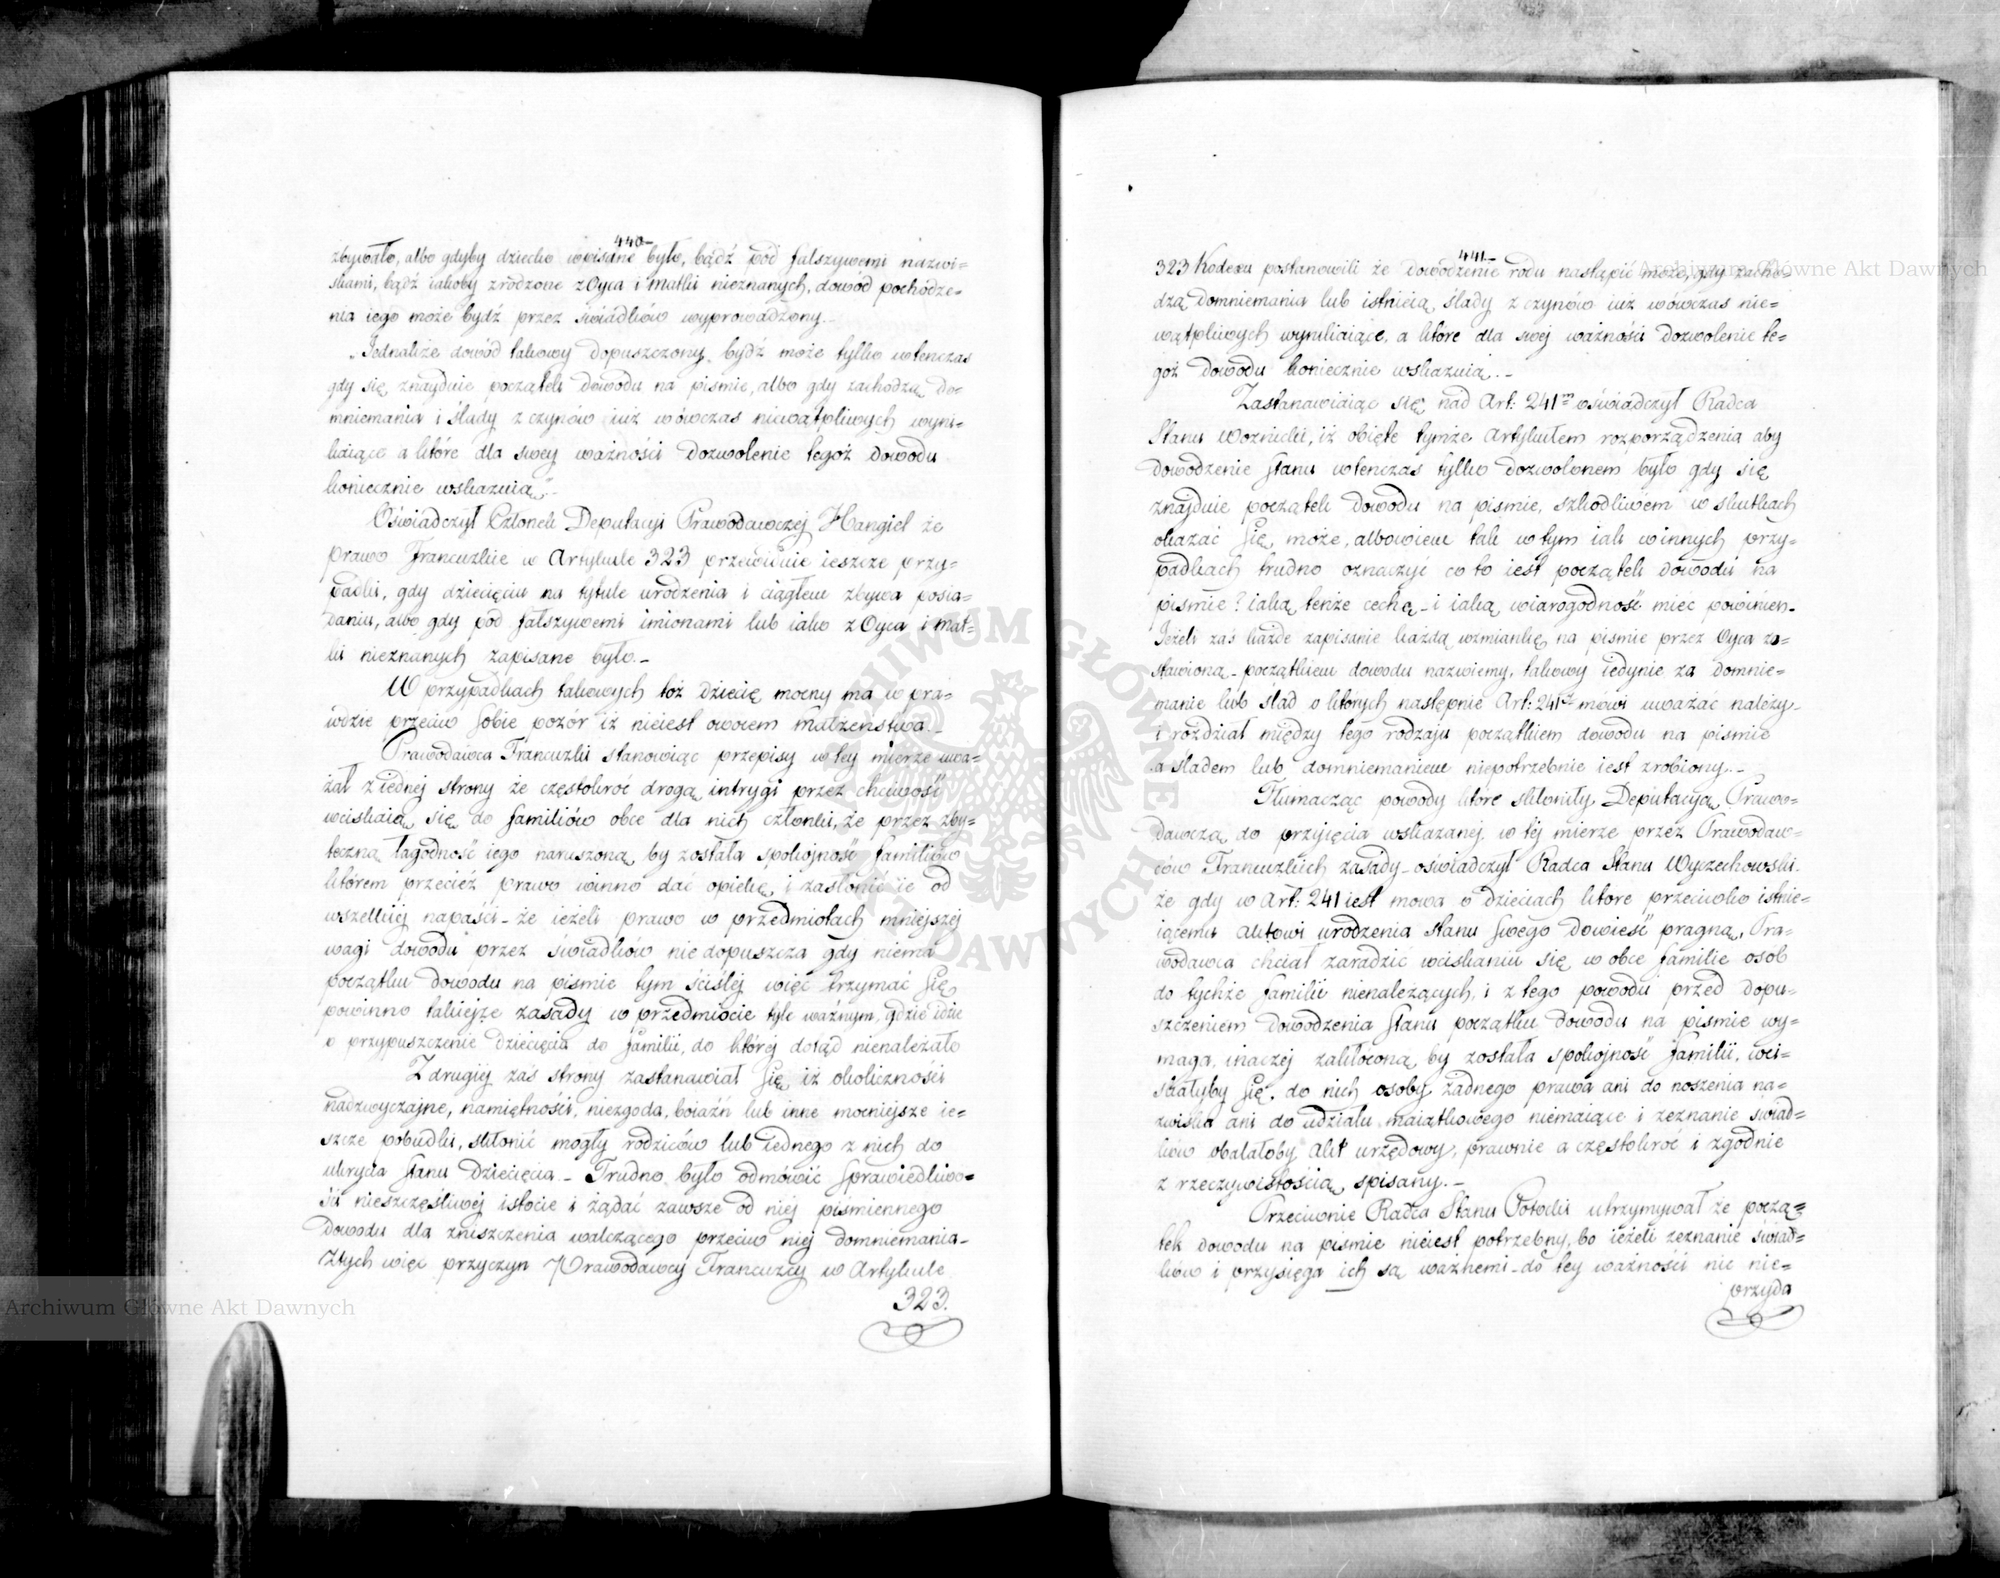 440
zbywało, albo gdyby dziecko wpisane było, bądź pod fałszywemi nazwi=
skami, bądź iakoby zrodzone z Oyca i Matki nieznanych, dowód pochodze=
nia iego może bydź przez świadków wyprowadzony.
„Jednakże dowód takowy dopuszczony bydź może tylko wtenczas
gdy się znayduie początek dowodu na pismie, albo gdy zachodzą do=
mniemania i ślady z czynów iuż wówczas niewątpliwych wyni=
kaiące a które dla swey ważności dozwolenie tegoż dowodu
koniecznie wskazuią".
Oświadczył Członek Deputacyi Prawodawczej Hangiel że
prawo Francuzkie w Artykule 323 przewiduie ieszcze przy=
padki, gdy dziecięciu na tytule urodzenia i ciągłem zbywa posia=
daniu, albo gdy pod fałszywemi imionami lub iako z Oyca i Mat=
ki nieznanych zapisane było._
W przypadkach takowych toż dziecię mocny ma w pra=
wdzie przeciw sobie pozór iż nieiest owocem Małżeństwa._
Prawodawca Francuzki stanowiąc przepisy w tey mierze uwa=
żał z iednej strony że częstokroć drogą intrygi przez chciwość
wciskaią się do familiów obce dla nich członki, że przez zby=
teczną łagodność iego naruszoną by została spokojność familiów
którem przecież prawo winno dać opiekę i zasłonić ie od
wszelkiej napaści_ że ieżeli prawo w przedmiotach mniejszej
wagi dowodu przez świadków niedopuszcza gdy niema
początku dowodu na pismie tym ściślej więc trzymać się
powinno takiejże zasady w przedmiocie tyle ważnym, gdzie idzie
o przypuszczenie dziecięcia do familii, do której dotąd nienależało
Z drugiej zaś strony zastanawiał się iż okoliczności
nadzwyczajne, namiętności, niezgoda, boiaźń lub inne mocniejsze ie=
szcze pobudki, skłonić mogły rodziców lub iednego z nich do
ukrycia stanu Dziecięcia._ Trudno było odmówić sprawiedliwo=
ści nieszczęśliwej istocie i żądać zawsze od niej pismiennego
dowodu dla zniszczenia walczącego przeciw niej domniemania_
Z tych więc przyczyn Prawodawcy Francuzcy w Artykule
323.
441
323 Kodexu postanowili że dowodzenie rodu nastąpić może, gdy zacho=
dzą domniemania lub istnieią ślady z czynów iuż wówczas nie=
wątpliwych wynikaiące, a które dla swej ważności dozwolenie te=
goż dowodu koniecznie wskazuią._
Zastanawiaiąc się nad Art: 241m oświadczył Radca
Stanu Woznicki, iż obięte tymże Artykułem rozporządzenia aby
dowodzenie stanu wtenczas tylko dozwolonem było gdy się
znajduie początek dowodu na pismie, szkodliwem w skutkach
okazać się może, albowiem tak w tym iak w innych przy=
padkach trudno oznaczyć co to iest początek dowodu na
pismie? iaką tenże cechę i iaką wiarogodność mieć powinien_
Jeżeli zaś każde zapisanie każdą wzmiankę na pismie przez Oyca zo=
stawioną_ początkiem dowodu nazwiemy, takowy iedynie za domnie=
manie lub ślad o których następnie Art: 241szy mówi uważać należy_
i rozdział między tego rodzaju początkiem dowodu na pismie
a śladem lub domniemaniem niepotrzebnie iest zrobiony._
Tłumacząc powody które skłoniły Deputacyą Prawo=
dawczą do przyjęcia wskazanej w tej mierze przez Prawodaw=
ców Francuzkich zasady_ oświadczył Radca Stanu Wyczechowski
że gdy w Art: 241 iest mowa o dzieciach które przeciwko istnie=
iącemu aktowi urodzenia stanu swego dowieść pragną, Pra=
wodawca chciał zaradzić wciskaniu się w obce familie osób
do tychże familii nienależących, i z tego powodu przed dopu=
szczeniem dowodzenia stanu początku dowodu na pismie wy=
maga, inaczej zakłóconą by została spokojność familii, wci=
skałyby się do nich osoby żadnego prawa ani do noszenia na=
zwiska ani do udziału maiątkowego niemaiące i zeznanie świad=
ków obalałoby akt urzędowy, prawnie a częstokroć i zgodnie
z rzeczywistością spisany._
Przeciwnie Radca Stanu Potocki utrzymywał że począ=
tek dowodu na pismie nieiest potrzebny, bo ieżeli zeznanie świad=
ków i przysięga ich są ważnemi_ do tey ważności nic nie=
przyda
Archiwum Główne Akt Dawnych
Archiwum Główne Akt Dawnych
ARCHIWUM GŁÓWNE AKT DAWNYCH